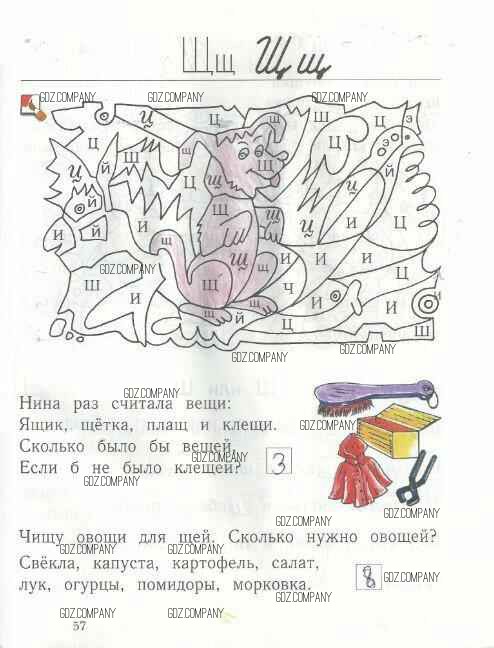 Щщ Щщ
GDZ.COMPANY GDZ.COMPANY GDZ.COMPANY
Щ Ц щ Ш Ц Э
Ц Ш щ Щ Ц Э
Щ Й Ц Щ Щ Й
Й Щ Щ Щ И Ц
И Й И щ Щ И И И
GDZ.COMPANY
Ш И Щ щ Ч И И Ц И
щ щ Й Ц Ш
GDZ.COMPANY GDZ.COMPANY
GDZ.COMPANY
Нина раз считала вещи:
Ящик, щётка, плащ и клещи.
GDZ.COMPANY GDZ.COMPANY
Сколько было бы вещей,
GDZ.COMPANY
Если б не было клещей? 3
GDZ.COMPANY GDZ.COMPANY
GDZ.COMPANY
Чищу овощи для щей. Сколько нужно овощей?
GDZ.COMPANY GDZ.COMPANY
Свёкла, капуста, картофель, салат,
GDZ.COMPANY
лук, огурцы, помидоры, морковка. 8
GDZ.COMPANY
GDZ.COMPANY GDZ.COMPANY
57